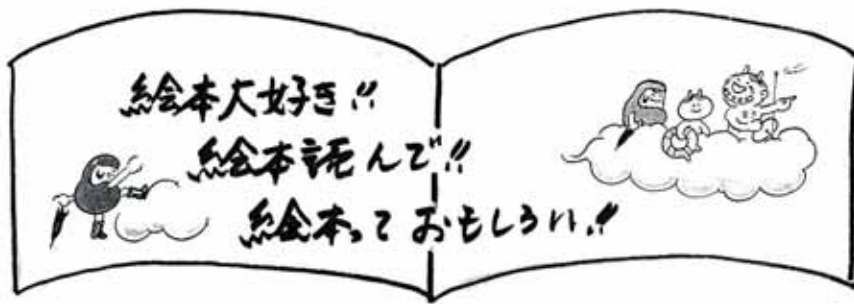 絵本大好き!!
絵本読んで!!
絵本っておもしろい!!